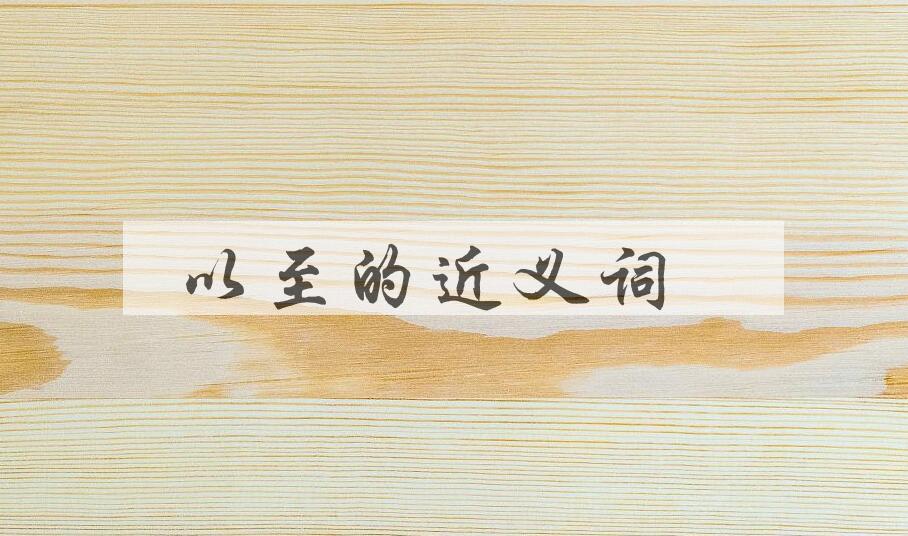 以至的近义词